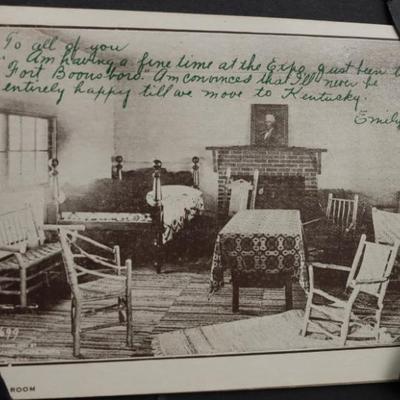 To all of you
Am having a fine time at the Expo. Just been t
"Fort Boonsboro." Am convinced that I'll never be
entirely happy till we move to Kentucky.
Emily
ROOM